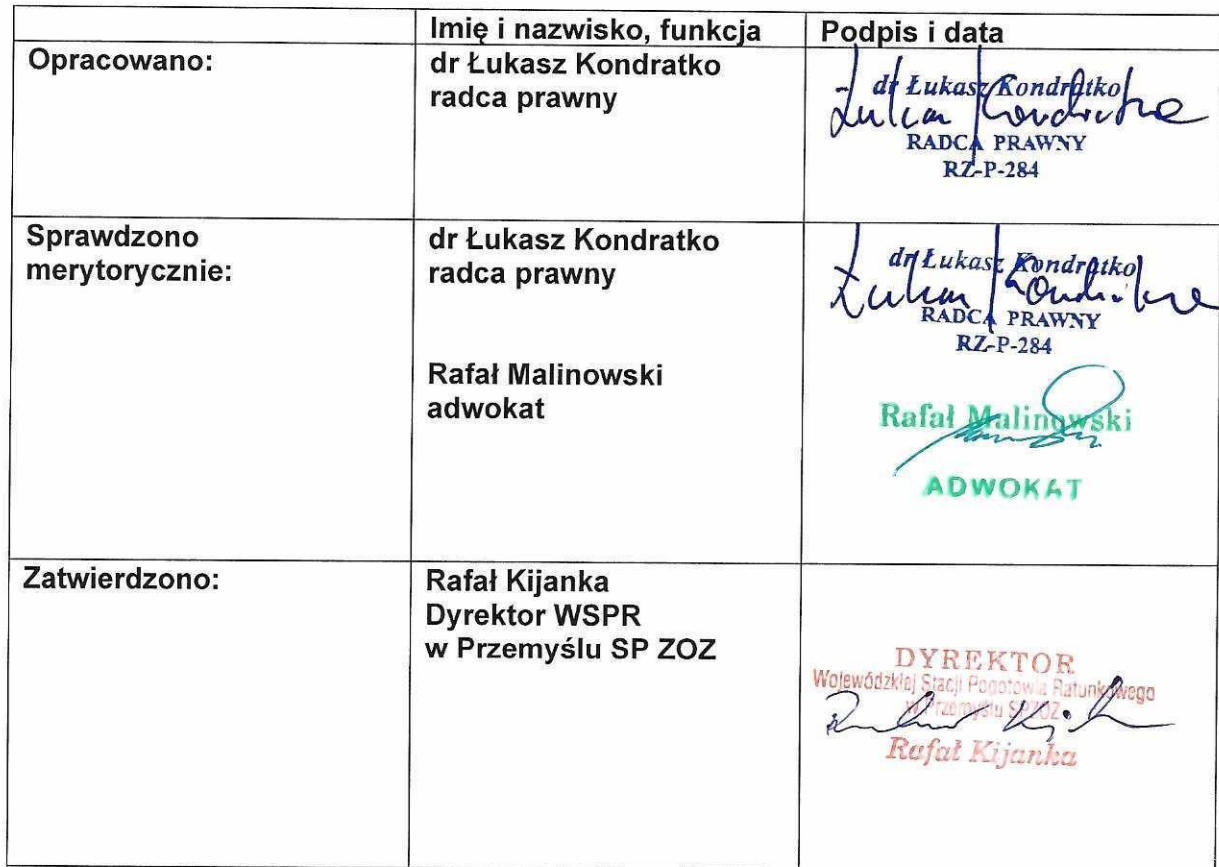 Imię i nazwisko, funkcja
Podpis i data
Opracowano:
dr Łukasz Kondratko
radca prawny
dr Łukasz Kondratko
Łukasz Kondratko
RADCA PRAWNY
RZ-P-284
Sprawdzono
merytorycznie:
dr Łukasz Kondratko
radca prawny
dr Łukasz Kondratko
Łukasz Kondratko
RADCA PRAWNY
RZ-P-284
Rafał Malinowski
adwokat
Rafał Malinowski
ADWOKAT
Zatwierdzono:
Rafał Kijanka
Dyrektor WSPR
w Przemyślu SP ZOZ
DYREKTOR
Wojewódzkiej Stacji Pogotowia Ratunkowego
w Przemyślu SPZOZ
Rafał Kijanka